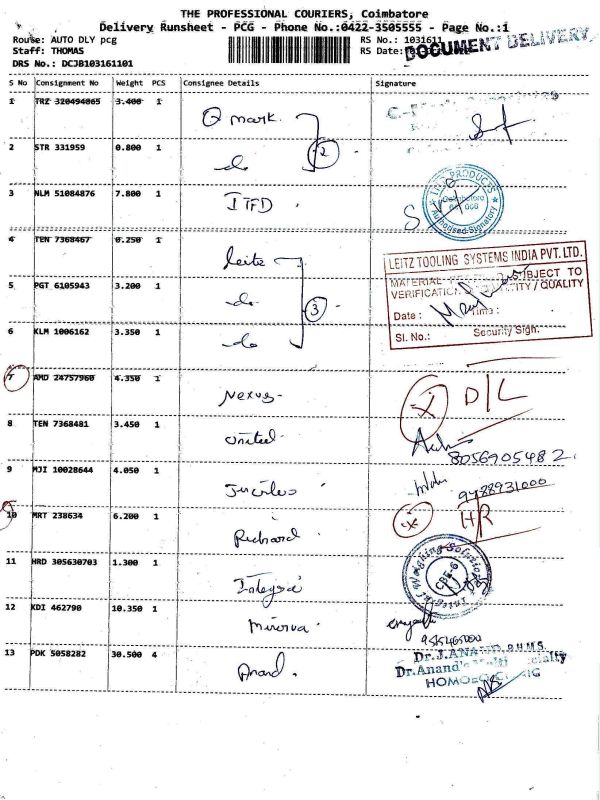 THE PROFESSIONAL COURIERS, Coimbatore
Delivery Runsheet - PCG - Phone No.:0422-3505555 - Page No.:1
Route: AUTO DLY pcg RS No.: 1031611
Staff: THOMAS RS Date:
DOCUMENT DELIVERY
DRS No.: DCJB103161101
S No Consignment No Weight PCS Consignee Details Signature
1 TRZ 320494065 3.400 1 Q mark.
2 STR 331959 0.800 1 do 2
3 NLM 51084876 7.800 1 ITFD .
IND PRODUCTS
Coimbatore
Authorised Signatory
4 TEN 7368467 0.250 1 Leitz
5 PGT 6105943 3.200 1 do 3
6 KLM 1006162 3.350 1 do
LEITZ TOOLING SYSTEMS INDIA PVT. LTD.
MATERIAL SUBJECT TO
VERIFICATION QUANTITY / QUALITY
Date : Time :
Sl. No.: Security Sign.
7 AMD 24757960 4.350 1 Nexus- D/L
8 TEN 7368481 3.450 1 United.
8056905482.
9 MJI 10028644 4.050 1
9488931000
10 MRT 238634 6.200 1 Richard H/R
11 HRD 305630703 1.300 1 Integra
Weighing Solutions
CBE-6
12 KDI 462790 10.350 1 Minerva .
13 PDK 5058282 30.500 4 Anand .
Dr.J.ANAND, B.H.M.S.
Dr.Anand's Multi Speciality
HOMOEO CLINIC